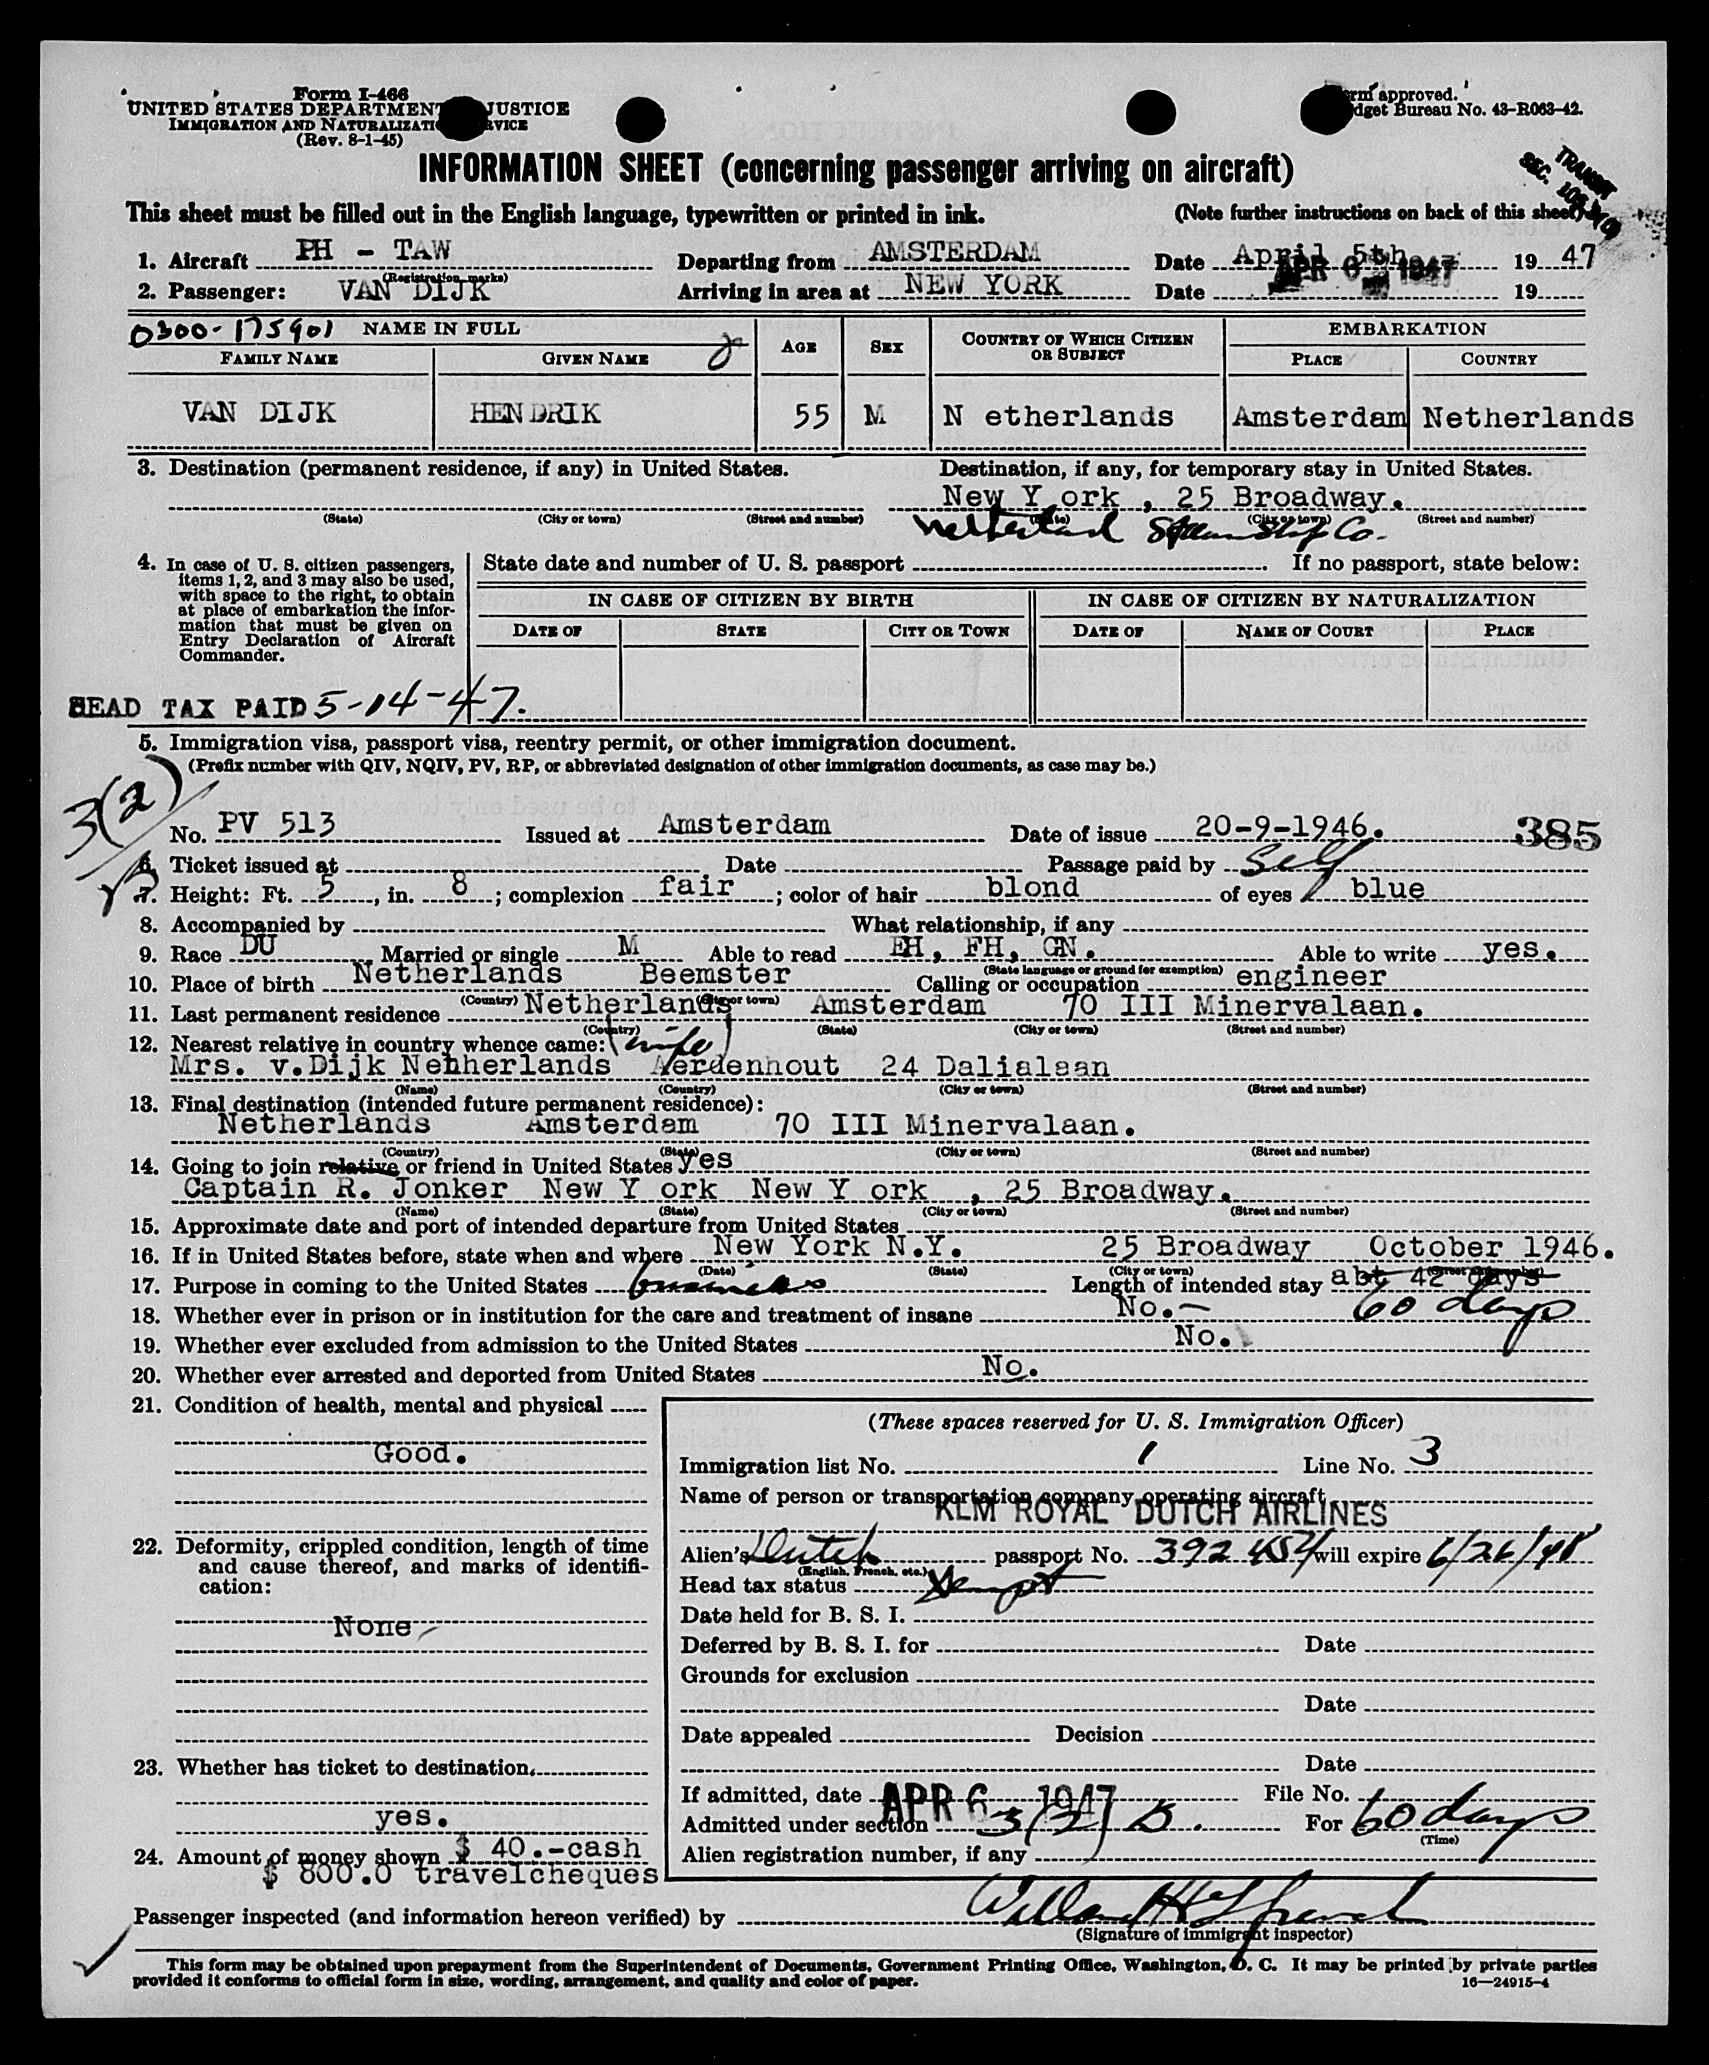 Form I-466
UNITED STATES DEPARTMENT JUSTICE
IMMIGRATION AND NATURALIZATI RVICE
(Rev. 8-1-45)
rm approved.
dget Bureau No. 43-R063-42.
INFORMATION SHEET (concerning passenger arriving on aircraft)
TRANSIT
SEC.
This sheet must be filled out in the English language, typewritten or printed in ink. (Note further instructions on back of this sheet)
1. Aircraft PH - TAW Departing from AMSTERDAM Date April 5th 19 47
(Registration marks)
2. Passenger: VAN DIJK Arriving in area at NEW YORK Date APR 6 1947 19
0300-175901 NAME IN FULL AGE SEX COUNTRY OF WHICH CITIZEN OR SUBJECT EMBARKATION
FAMILY NAME GIVEN NAME PLACE COUNTRY
VAN DIJK HENDRIK 55 M N etherlands Amsterdam Netherlands
3. Destination (permanent residence, if any) in United States. Destination, if any, for temporary stay in United States.
New Y ork , 25 Broadway.
(State) (City or town) (Street and number) (State) (City or town) (Street and number)
Netherland Steamship Co.
4. In case of U. S. citizen passengers, items 1, 2, and 3 may also be used, with space to the right, to obtain at place of embarkation the information that must be given on Entry Declaration of Aircraft Commander.
State date and number of U. S. passport . If no passport, state below:
IN CASE OF CITIZEN BY BIRTH IN CASE OF CITIZEN BY NATURALIZATION
DATE OF STATE CITY OR TOWN DATE OF NAME OF COURT PLACE
HEAD TAX PAID 5-14-47.
5. Immigration visa, passport visa, reentry permit, or other immigration document.
(Prefix number with QIV, NQIV, PV, RP, or abbreviated designation of other immigration documents, as case may be.)
3(2)
No. PV 513 Issued at Amsterdam Date of issue 20-9-1946. 385
6. Ticket issued at Date Passage paid by Self
7. Height: Ft. 5, in. 8; complexion fair; color of hair blond of eyes blue
8. Accompanied by What relationship, if any
9. Race DU Married or single M Able to read EH, FH, GN. Able to write yes.
(State language or ground for exemption)
10. Place of birth Netherlands Beemster Calling or occupation engineer
(Country) (City or town)
11. Last permanent residence Netherlands Amsterdam 70 III Minervalaan.
(Country) (State) (City or town) (Street and number)
12. Nearest relative in country whence came: (wife)
Mrs. v.Dijk Netherlands Aerdenhout 24 Dalialaan
(Name) (Country) (City or town) (Street and number)
13. Final destination (intended future permanent residence):
Netherlands Amsterdam 70 III Minervalaan.
(Country) (State) (City or town) (Street and number)
14. Going to join relative or friend in United States yes
Captain R. Jonker New Y ork New Y ork , 25 Broadway.
(Name) (State) (City or town) (Street and number)
15. Approximate date and port of intended departure from United States
16. If in United States before, state when and where New York N.Y. 25 Broadway October 1946.
(Date) (State) (City or town) (Street and number)
17. Purpose in coming to the United States business Length of intended stay abt 42 days
60 days
18. Whether ever in prison or in institution for the care and treatment of insane No.-
19. Whether ever excluded from admission to the United States No.
20. Whether ever arrested and deported from United States No.
21. Condition of health, mental and physical
Good.
22. Deformity, crippled condition, length of time and cause thereof, and marks of identification:
None
23. Whether has ticket to destination
yes.
24. Amount of money shown $ 40.-cash
$ 800.0 travelcheques
(These spaces reserved for U. S. Immigration Officer)
Immigration list No. 1 Line No. 3
Name of person or transportation company operating aircraft
KLM ROYAL DUTCH AIRLINES
Alien's Dutch passport No. 392454 will expire 6/26/48
(English, French, etc.)
Head tax status Exempt
Date held for B. S. I.
Deferred by B. S. I. for Date
Grounds for exclusion
Date
Date appealed Decision
Date
If admitted, date APR 6 1947 File No.
Admitted under section 3(2) B. For 60 days
(Time)
Alien registration number, if any
Passenger inspected (and information hereon verified) by
(Signature of immigrant inspector)
This form may be obtained upon prepayment from the Superintendent of Documents, Government Printing Office, Washington, D. C. It may be printed by private parties
provided it conforms to official form in size, wording, arrangement, and quality and color of paper. 16—24915-4